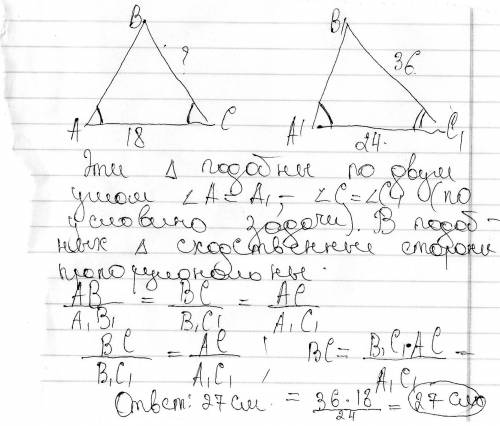 B B₁
? 36
A 18 C A¹ 24. C₁
Эти Δ подобны по двум
углом ∠A = A₁ – ∠C = ∠C₁ (по
условию задачи). В подоб-
ных Δ сходственные стороны
пропорциональны.
AB/A₁B₁ = BC/B₁C₁ = AC/A₁C₁
BC/B₁C₁ = AC/A₁C₁, BC = B₁C₁·AC/A₁C₁ =
Ответ: 27 см. = 36·18/24 = 27 см